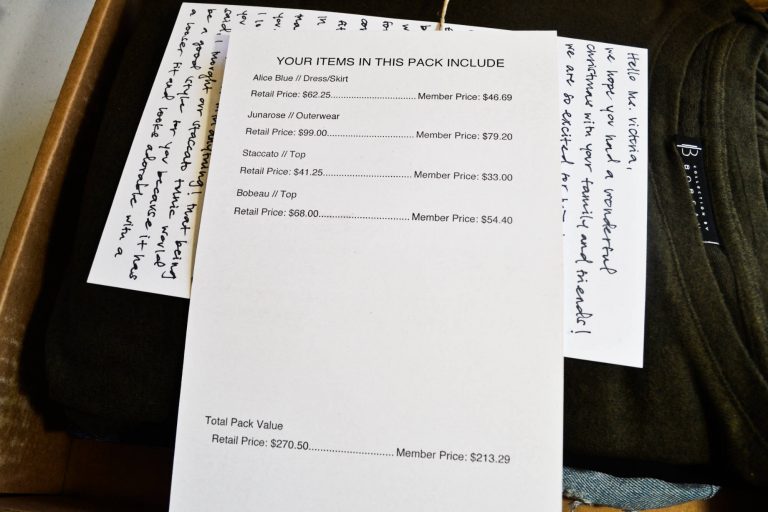 YOUR ITEMS IN THIS PACK INCLUDE
Alice Blue // Dress/Skirt
Retail Price: $62.25................................ Member Price: $46.69
Junarose // Outerwear
Retail Price: $99.00................................ Member Price: $79.20
Staccato // Top
Retail Price: $41.25................................ Member Price: $33.00
Bobeau // Top
Retail Price: $68.00................................ Member Price: $54.40
Total Pack Value
Retail Price: $270.50.............................. Member Price: $213.29
Hello Ms. Victoria,
we hope you had a wonderful
christmas with your family and friends!
we are so excited for
said, I thought our staccato tunic
be a good style for you because it has
a looser fit and looks adorable with a
anything! that being
would
B
COLLECTION BY